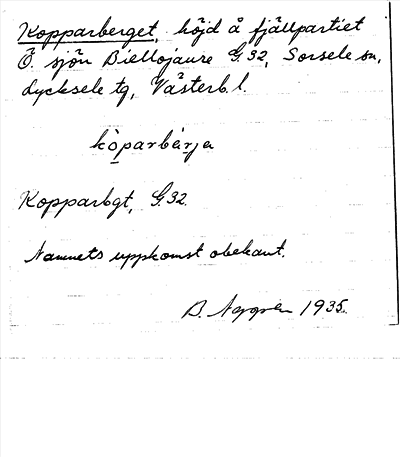 Kopparberget, höjd å fjällpartiet
Ö. sjön Biellojaure G.32, Sorsele sn,
Lycksele tg, Västerb. l.
kòparbærja
Kopparbgt, G.32.
Namnets uppkomst obekant.
B. Nygren 1935.